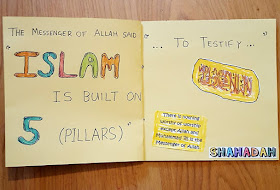 THE MESSENGER OF ALLAH SAID
"ISLAM
IS BUILT ON
5 (PILLARS)"
"... TO TESTIFY ...
"
There is nothing
worthy of worship
except Allah and
Muhammad is the
Messenger of Allah.
SHAHADAH